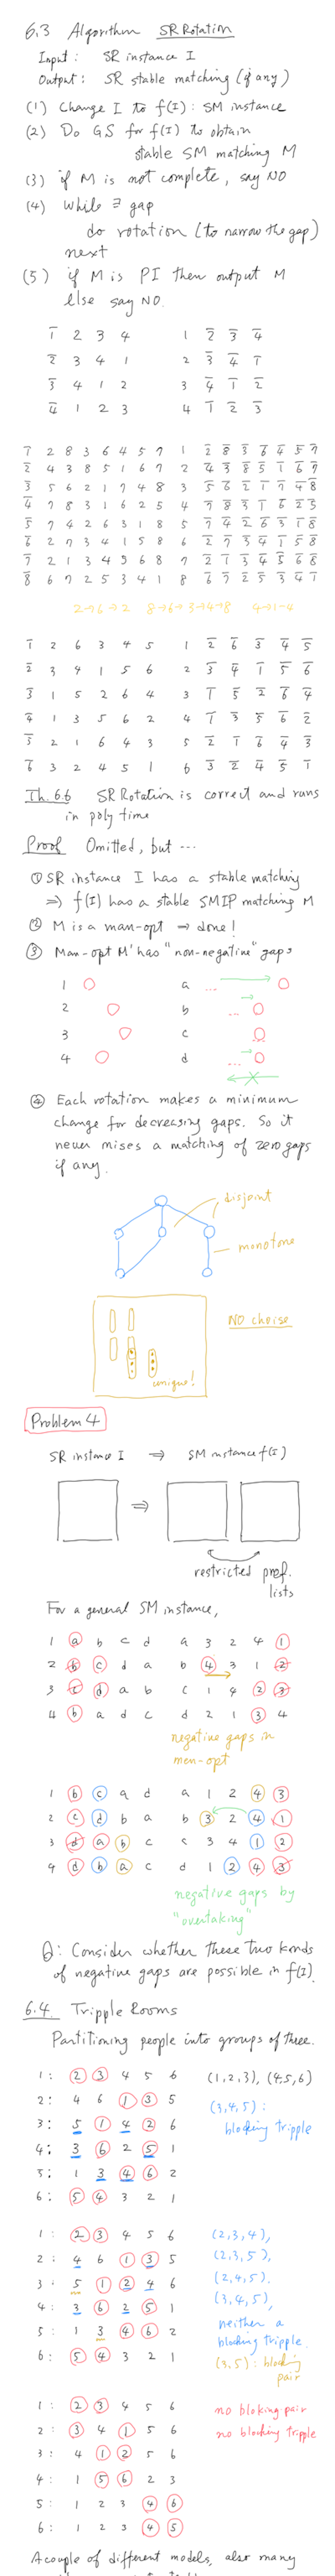 6.3 Algorithm SR Rotation
Input: SR instance I
Output: SR stable matching (if any)
(1) Change I to f(I): SM instance
(2) Do GS for f(I) to obtain
stable SM matching M
(3) if M is not complete, say NO
(4) while ∃ gap
do rotation (to narrow the gap)
next
(5) if M is PI then output M
else say NO.
1̅ 2 3 4 1 2̅ 3̅ 4̅
2̅ 3 4 1 2 3̅ 4̅ 1̅
3̅ 4 1 2 3 4̅ 1̅ 2̅
4̅ 1 2 3 4 1̅ 2̅ 3̅
1̅ 2 8 3 6 4 5 7 1 2̅ 8̅ 3̅ 6̅ 4̅ 5̅ 7̅
2̅ 4 3 8 5 1 6 7 2 4̅ 3̅ 8̅ 5̅ 1̅ 6̅ 7̅
3̅ 5 6 2 1 7 4 8 3 5̅ 6̅ 2̅ 1̅ 7̅ 4̅ 8̅
4̅ 7 8 3 1 6 2 5 4 7̅ 8̅ 3̅ 1̅ 6̅ 2̅ 5̅
5̅ 7 4 2 6 3 1 8 5 7̅ 4̅ 2̅ 6̅ 3̅ 1̅ 8̅
6̅ 2 7 3 4 1 5 8 6 2̅ 7̅ 3̅ 4̅ 1̅ 5̅ 8̅
7̅ 2 1 3 4 5 6 8 7 2̅ 1̅ 3̅ 4̅ 5̅ 6̅ 8̅
8̅ 6 7 2 5 3 4 1 8 6̅ 7̅ 2̅ 5̅ 3̅ 4̅ 1̅
2→6→2 8→6→3→4→8 4→1→4
1̅ 2 6 3 4 5 1 2̅ 6̅ 3̅ 4̅ 5̅
2̅ 3 4 1 5 6 2 3̅ 4̅ 1̅ 5̅ 6̅
3̅ 1 5 2 6 4 3 1̅ 5̅ 2̅ 6̅ 4̅
4̅ 1 3 5 6 2 4 1̅ 3̅ 5̅ 6̅ 2̅
5̅ 2 1 6 4 3 5 2̅ 1̅ 6̅ 4̅ 3̅
6̅ 3 2 4 5 1 6 3̅ 2̅ 4̅ 5̅ 1̅
Th. 6.6 SR Rotation is correct and runs
in poly time
Proof Omitted, but ---
① SR instance I has a stable matching
⇒ f(I) has a stable SMIP matching M
② M is a man-opt → done!
③ Man-opt M' has "non-negative" gaps
1 a ...
2 b ...
3 c ...
4 d ...
④ Each rotation makes a minimum
change for decreasing gaps. So it
never mises a matching of zero gaps
if any.
disjoint
monotone
NO choise
unique!
Problem 4
SR instance I ⇒ SM instance f(I)
⇒
restricted pref.
lists
For a general SM instance,
1 a b c d a 3 2 4 1
2 b c d a b 4 3 1 2
3 c d a b c 1 4 2 3
4 b a d c d 2 1 3 4
negative gaps in
men-opt
1 b c a d a 1 2 4 3
2 c d b a b 3 2 4 1
3 d a b c c 3 4 1 2
4 d b a c d 1 2 4 3
negative gaps by
"overtaking"
Q: Consider whether these two kinds
of negative gaps are possible in f(I).
6.4. Tripple Rooms
Partitioning people into groups of three.
1: 2 3 4 5 6 (1,2,3), (4,5,6)
2: 4 6 1 3 5 (3,4,5):
3: 5 1 4 2 6 blocking tripple
4: 3 6 2 5 1
5: 1 3 4 6 2
6: 5 4 3 2 1
1: 2 3 4 5 6 (2,3,4),
2: 4 6 1 3 5 (2,3,5),
3: 5 1 2 4 6 (2,4,5).
4: 3 6 2 5 1 (3,4,5),
5: 1 3 4 6 2 neither a
blocking tripple.
6: 5 4 3 2 1 (3,5): blocking
pair
1: 2 3 4 5 6 no bloking pair
2: 3 4 1 5 6 no blocking tripple
3: 4 1 2 5 6
4: 1 5 6 2 3
5: 1 2 3 4 6
6: 1 2 3 4 5
A couple of different models, also many